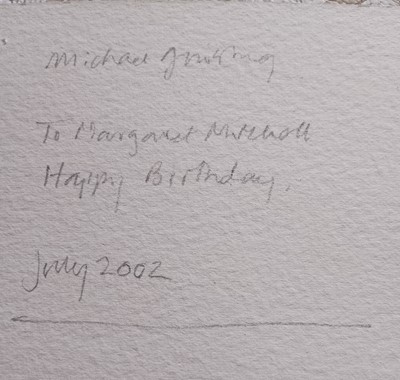 Michael
To Margaret Mitchell
Happy Birthday.
July 2002